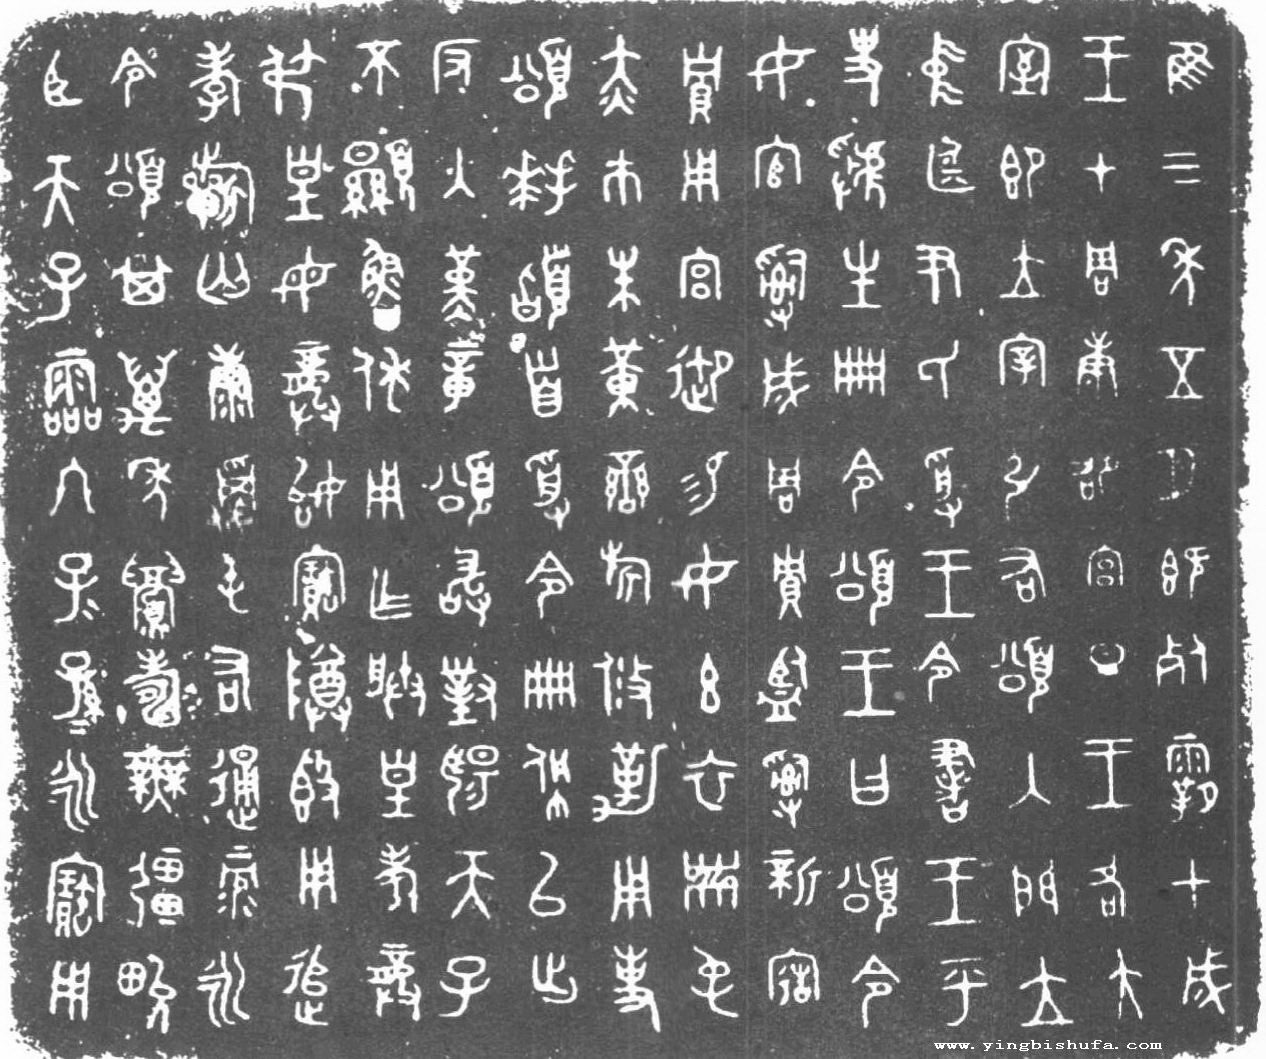 隹三年五月既死霸甲戌
王才周康卲宮旦王各大
室即立宰弘右頌入門立
中廷尹氏受王令書王乎
史虢生冊令頌王曰頌令
女官𤔲成周貯監𤔲新寤
貯用宮御易女玄衣黹屯
赤巿朱黃䜌旂攸勒用事
頌拜𩒨首受令冊佩以出
反入堇章頌敢對揚天子
不顯魯休用乍朕皇考龏
弔皇母龏姒寶尊𣪘用追
孝祈匄康𩁹屯右通彔永
令頌其萬年眉壽無疆畯
臣天子霝冬子孫永寶用
www.yingbishufa.com